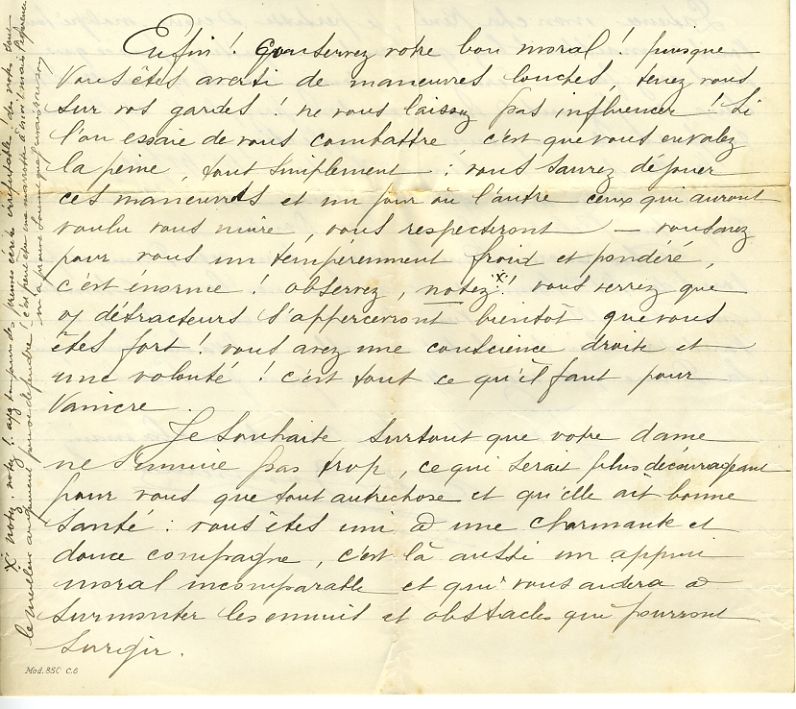 Enfin! Conservez votre bon moral! puisque
vous êtes averti de manœuvres louches, tenez vous
sur vos gardes! ne vous laissez pas influencer! Si
l'on essaie de vous combattre, c'est que vous en valez
la peine, tout simplement: vous saurez déjouer
ces manœuvres et un jour ou l'autre ceux qui auront
voulu vous nuire, vous respecteront — vous avez
pour vous un tempérenment froid et pondéré,
c'est énorme! observez, notez X! vous verrez que
vos détracteurs s'appercevront bientôt que vous
êtes fort! vous avez une conscience droite et
une volonté! c'est tout ce qu'il faut pour
vaincre.
Je souhaite surtout que votre dame
ne s'ennuie pas trop, ce qui serait plus décourageant
pour vous que tout autre chose et qu'elle ait bonne
santé: vous êtes uni à une charmante et
douce compagne, c'est là aussi un appui
moral incomparable et qui vous aidera à
surmonter les ennuis et obstacles qui pourront
surgir.
Mod. 850 C.6
X notez, notez! ayez toujours des preuves écrites irréfutables!
le meilleur argument pour se défendre! c'est peut être une marotte à moi! mais l'expérience
m'a prouvé souvent que j'avais raison